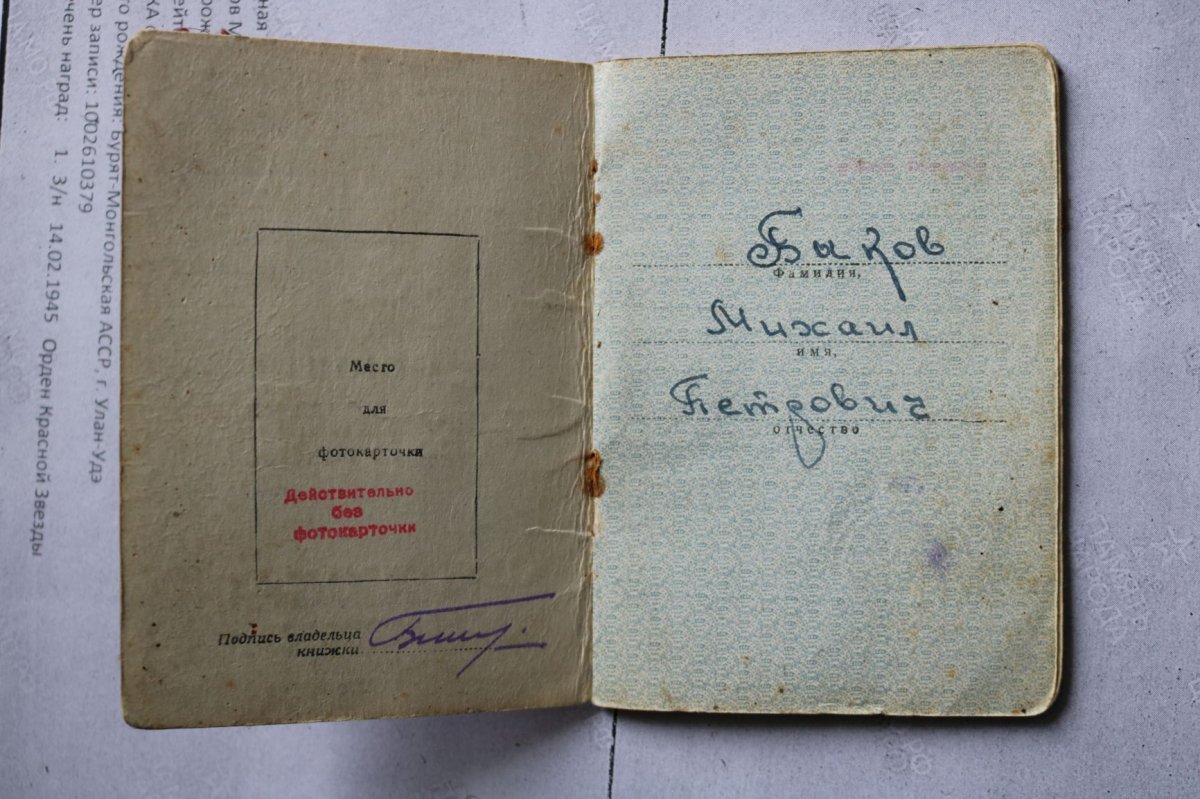 Место
для
фотокарточки
Действительно
без
фотокарточки
Подпись владельца
книжки
Быков
Фамилия,
Михаил
имя,
Петрович
отчество
ного рождения: Бурят-Монгольская АССР, г. Улан-Удэ
ер записи: 1002610379
чень наград: 1. З/н 14.02.1945 Орден Красной Звезды
ПАМЯТЬ
НАРОДА